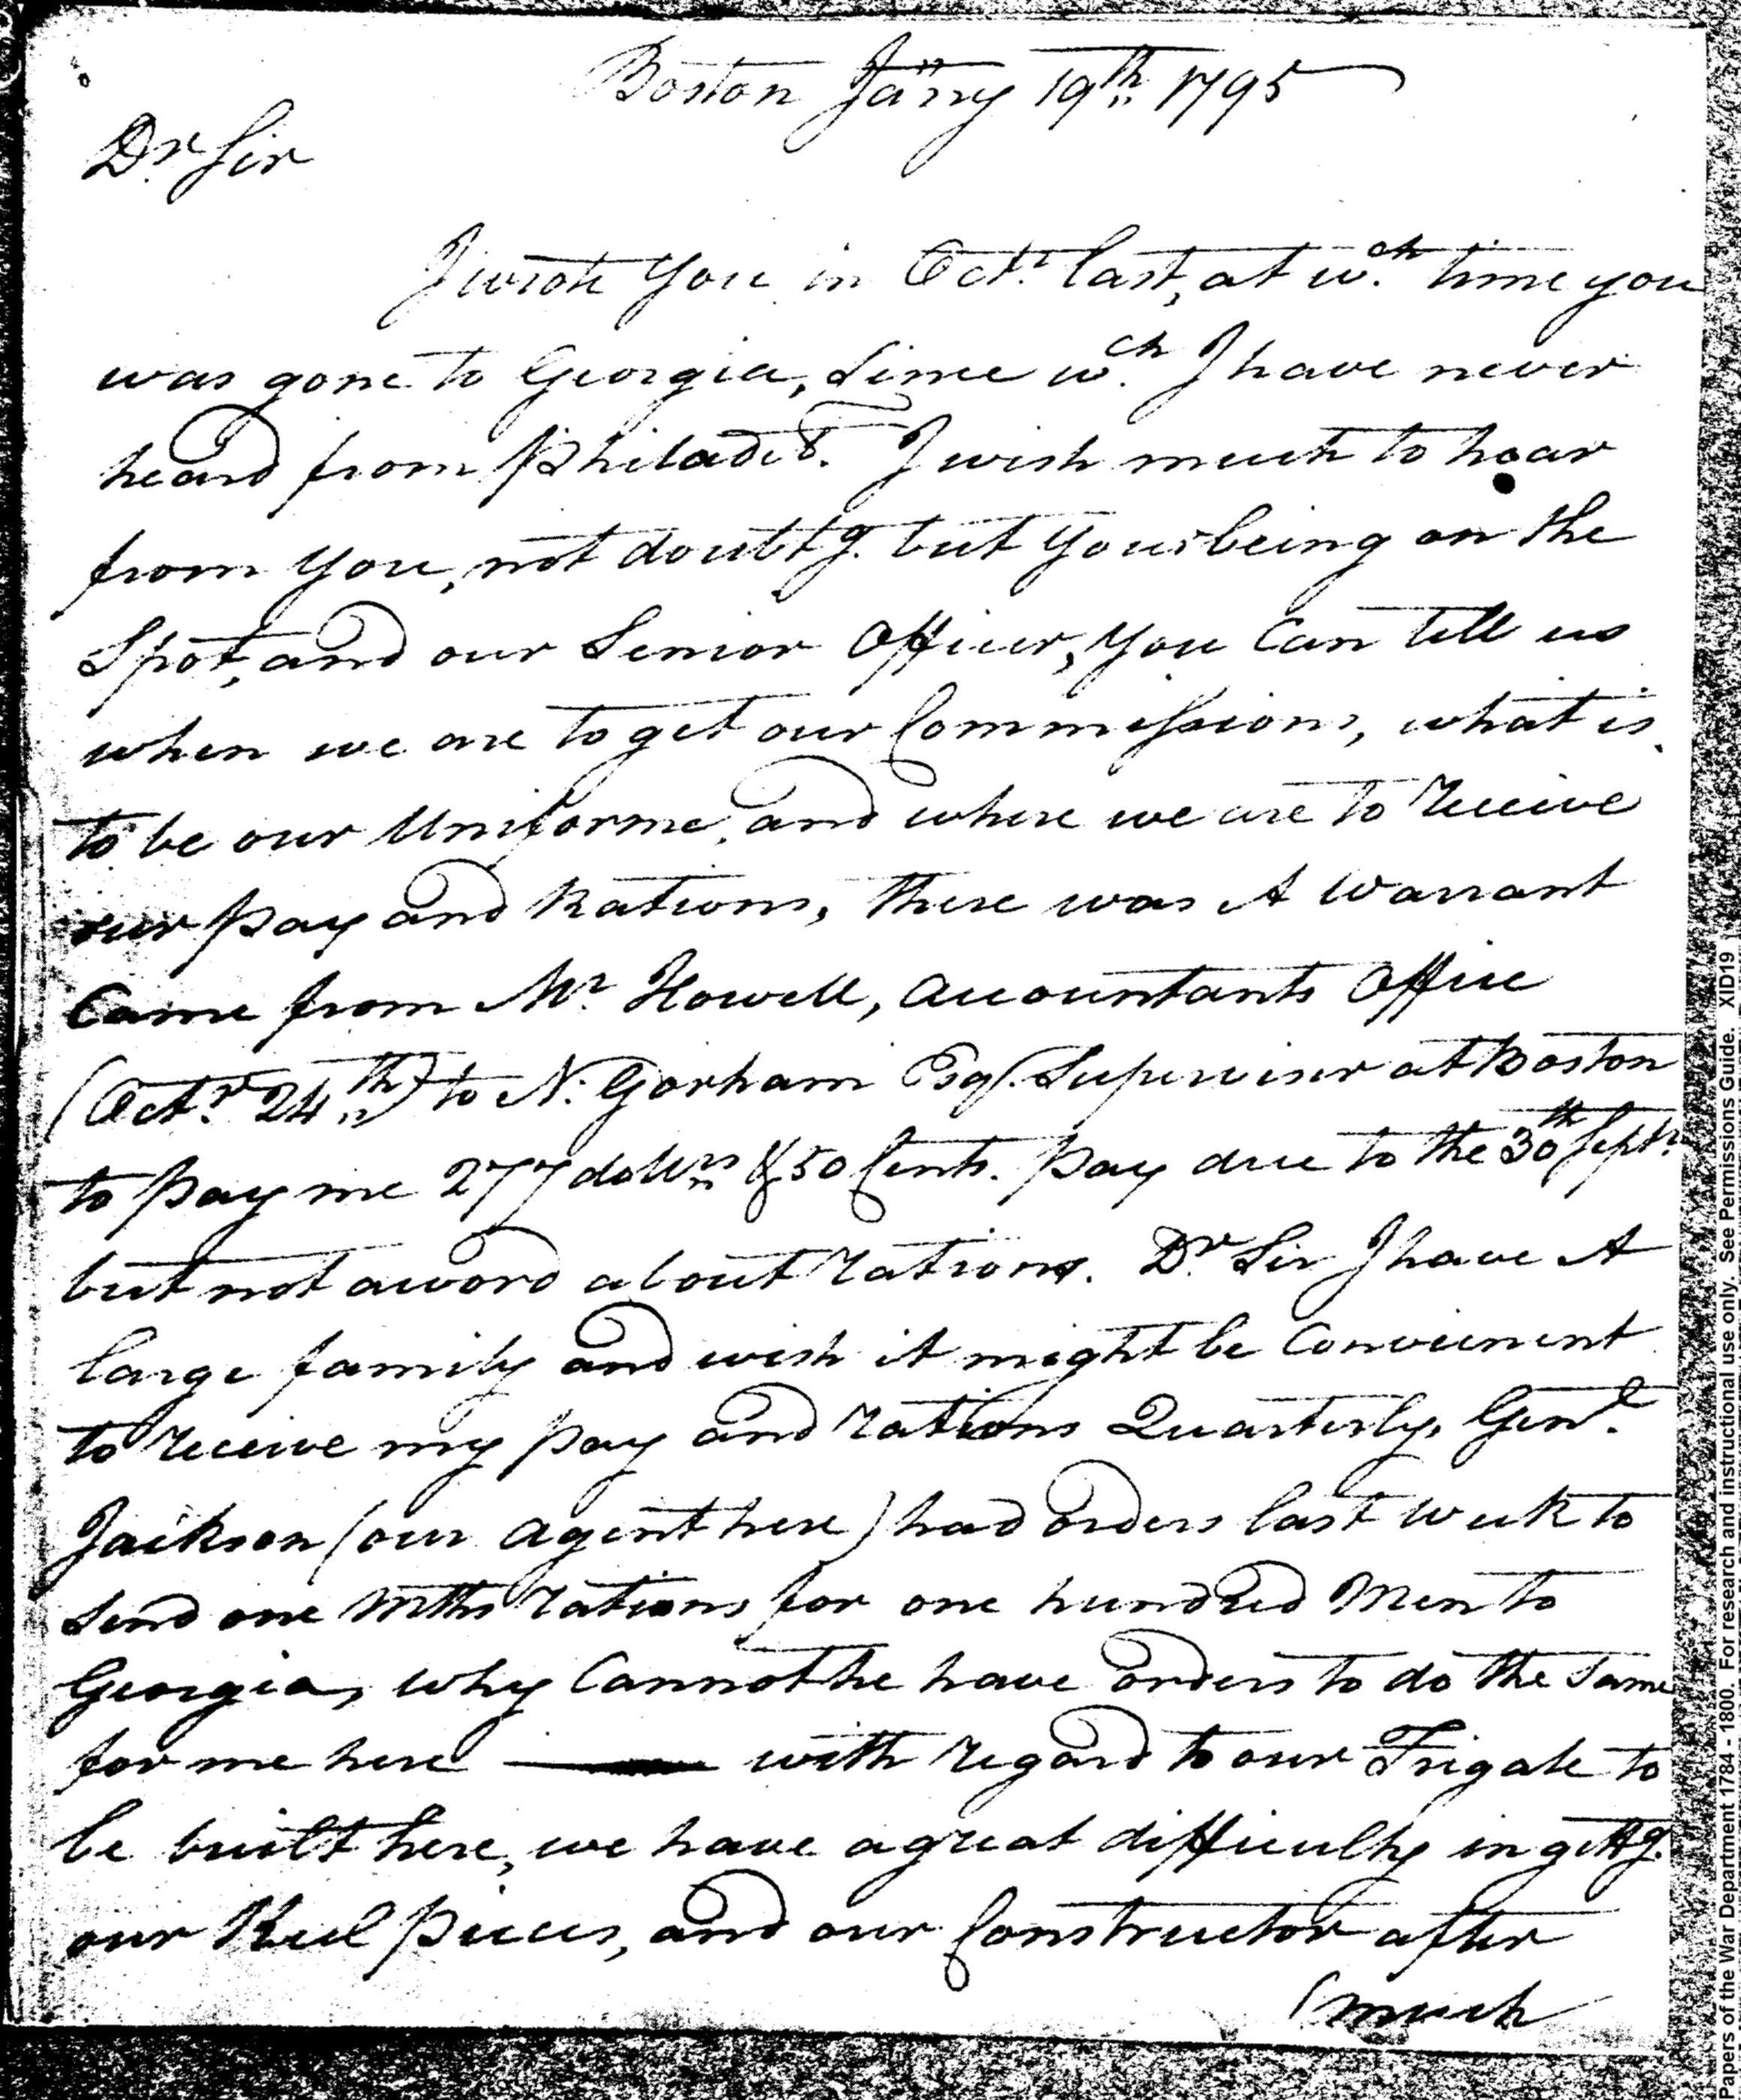 Boston Jany 19th 1795
Dr Sir
I wrote You in Octr last, at wch time you
was gone to Georgia, Since wch I have never
heard from Philadea. I wish much to hear
from You, not doubtg. but Your being on the
Spot, and our Senior Officer, You Can tell us
when we are to get our Commissions, what is
to be our Uniforme, and where we are to receive
our pay and Rations, there was A Warrant
Came from Mr. Howell, Accountants Office
(Octr. 24th) to N. Gorham Esq. Superviser at Boston
to pay me 277 dollrs & 50 Cents. pay due to the 30th Septr.
but not a word about rations. Dr Sir I have A
large family and wish it might be Convienent
to receive my pay and rations Quarterly, Genl.
Jackson (our agent here) had orders last week to
Send one mths rations for one hundred Men to
Georgia, why Cannot he have orders to do the Same
for me here — with regard to our Frigate to
be built here, we have a great difficulty in gettg.
our Keel pieces, and our Constructor after
(much
Papers of the War Department 1784 - 1800. For research and instructional use only. See Permissions Guide. XID19